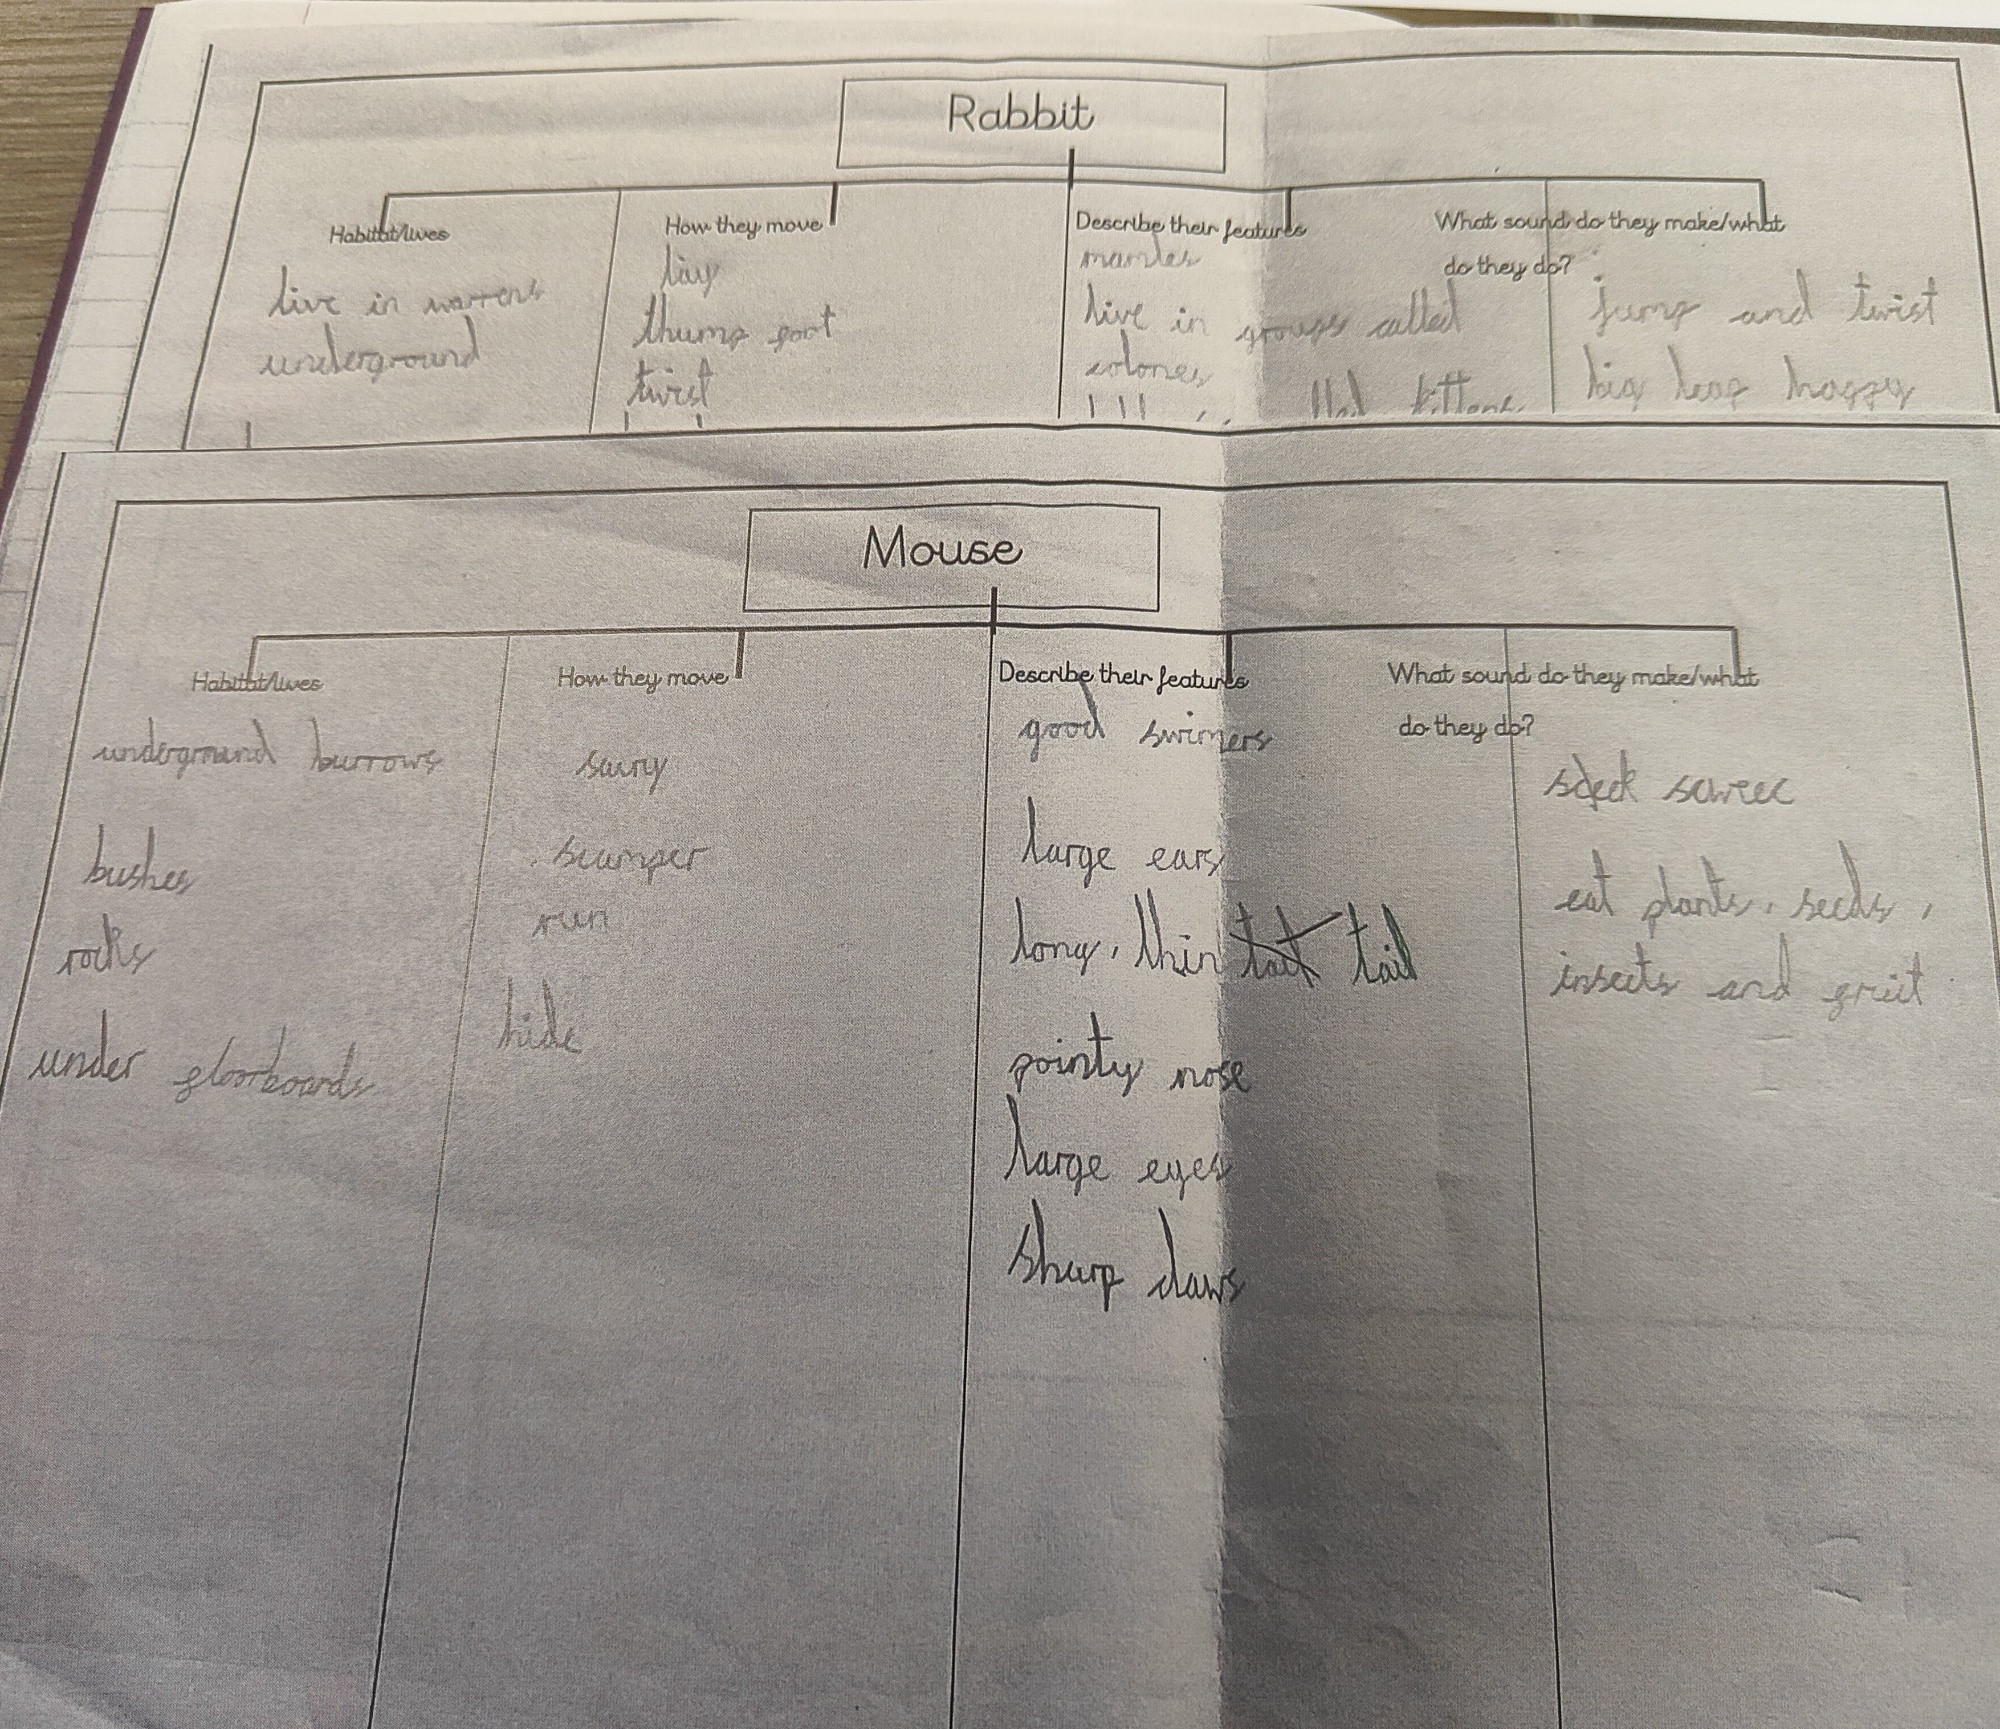 Rabbit
Habitat/lives
How they move
Describe their features
What sound do they make/what
do they do?
live in warrens
underground
thump foot
twist
live in groups called
colones
kittens
jump and twist
big leap happy
Mouse
Habitat/lives
How they move
Describe their features
What sound do they make/what
do they do?
underground burrows
bushes
rocks
under floorboards
scurry
scamper
run
hide
good swimers
large ears
long, thin tail
pointy nose
large eyes
sharp claws
eat plants, seeds,
insects and fruit